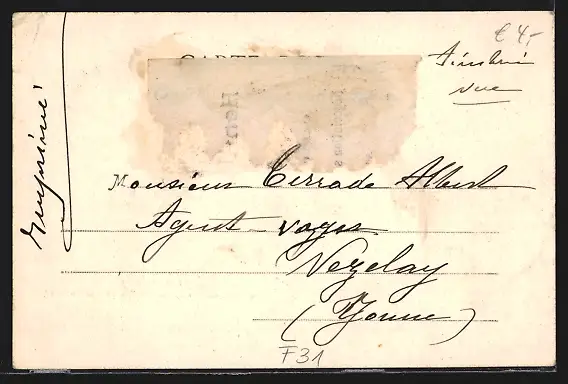 € 4,-
CARTE
Timbre
vue
Imprimé
Monsieur Terrade Albert
Agent-voyer
Vezelay
(Yonne)
F31